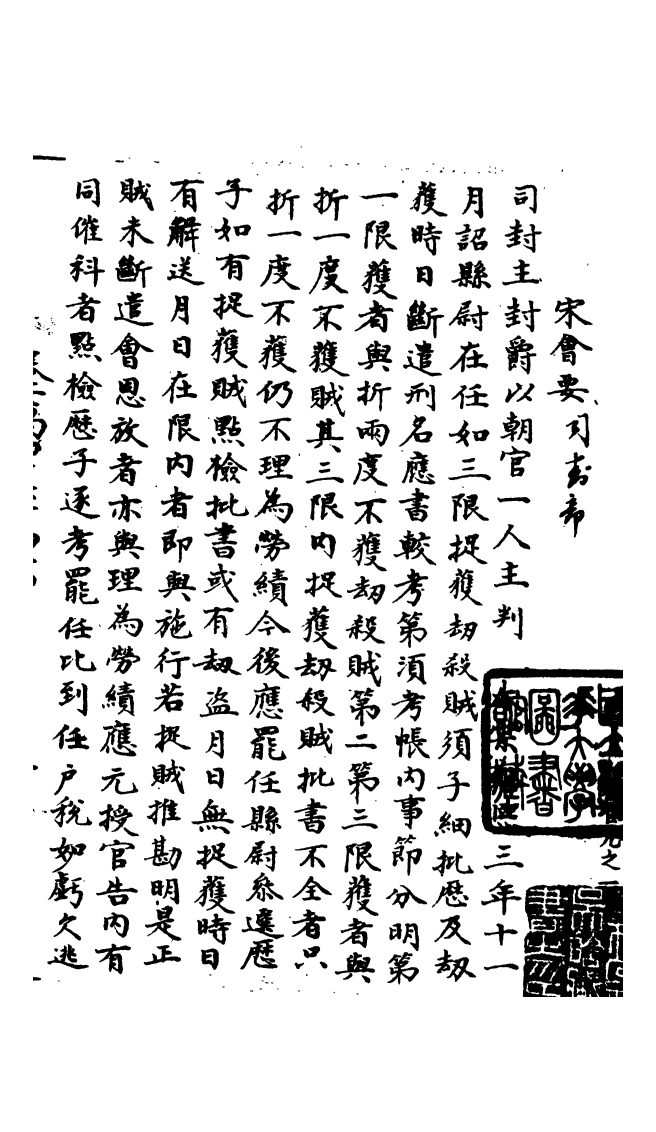 宋會要 司封部
司封主封爵以朝官一人主判 三年十一
月詔縣尉在任如三限捉獲刧殺賊須子細批歷及刧
獲時日斷遣刑名應書較考第須考帳內事節分明第
一限獲者與折兩度不獲刧殺賊第二第三限獲者與
折一度不獲賊其三限內捉獲刧殺賊批書不全者只
折一度不獲仍不理為勞績今後應罷任縣尉叅選歷
子如有捉獲賊點檢批書或有刧盜月日無捉獲時日
有解送月日在限內者即與施行若捉賊推勘明是正
賊未斷遣會恩放者亦與理為勞績應元授官告內有
同催科者點檢歷子逐考罷任比到任戶稅如虧欠逃
圖書